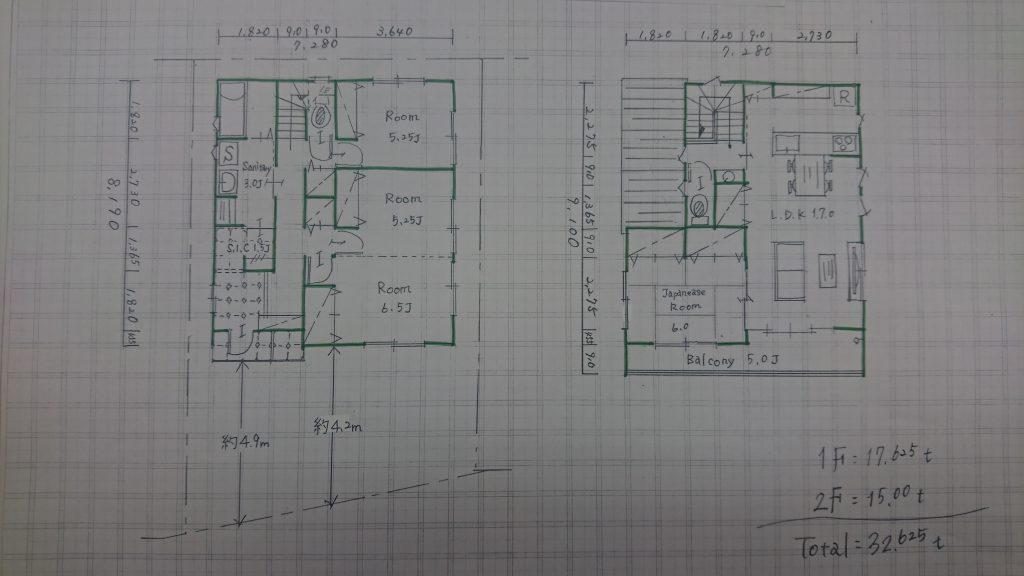 1,820 910 910 3,640
7.280
1,820 2,730 1,365 1,820 455
8,190
Room
5.25J
S
Sanitary
3.0J
Room
5.25J
S.I.C 1.5J
Room
6.5J
約4.9m
約4.2m
1,820 1,820 910 2,730
7.280
2,275 910 1,365 910 2,275 455 910
9,100
R
L.D.K 17.0
Japanease
Room
6.0
Balcony 5.0J
1F=17.625t
2F=15.00t
Total=32.625t